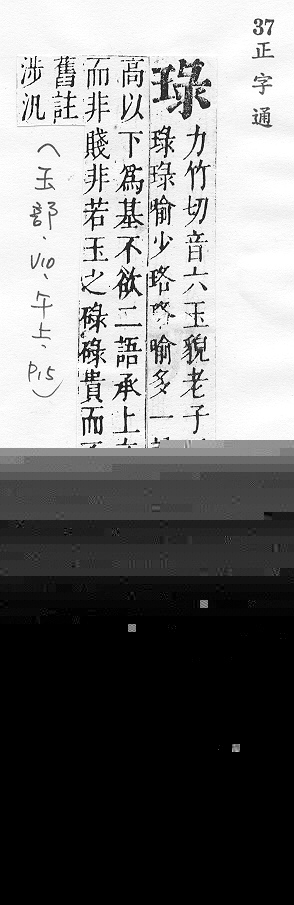 37
正字通
琭
力竹切音六玉貌老子
琭琭喻少珞珞喻多一
高以下爲基不欲二語承上
而非賤非若玉之碌碌貴而
舊註
涉汎
(玉部、V10、午上、P15)